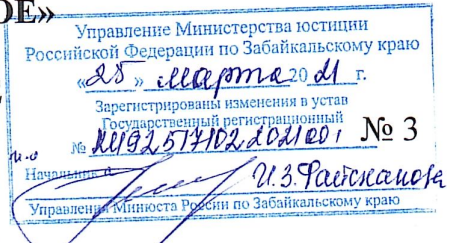 ОЕ»
Управление Министерства юстиции
Российской Федерации по Забайкальскому краю
«25» марта 2021 г.
Зарегистрированы изменения в устав
Государственный регистрационный
№ RU925171022021001 № 3
и.о
Начальника
Управления Минюста России по Забайкальскому краю